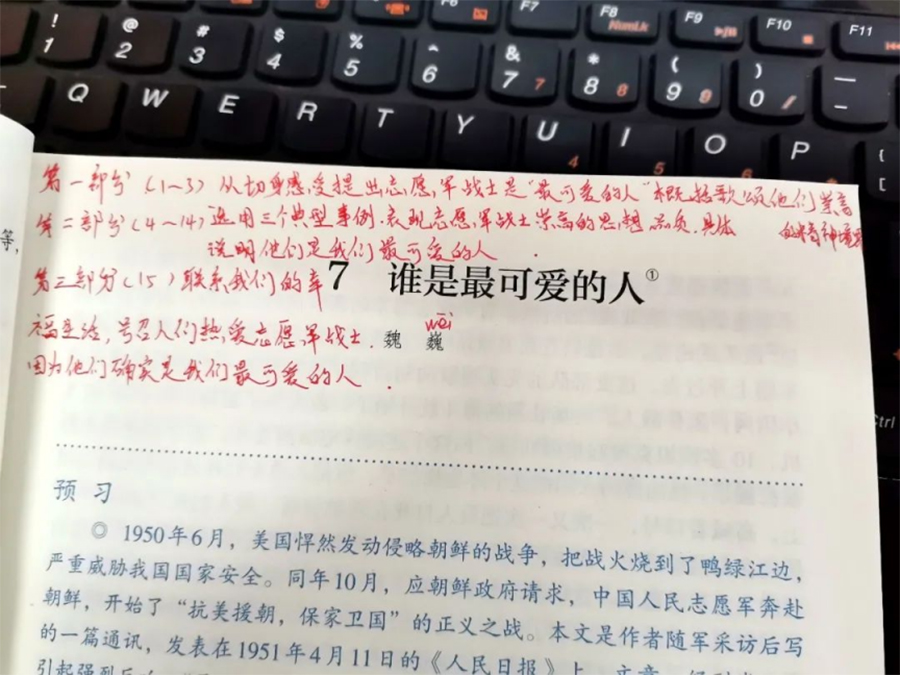 F6 F7 F8 NumLk F9 F10 F11
! 1 @ 2 # 3 $ 4 % 5 ^ 6 & 7 7 * 8 8 ( 9 9 ) 0 / — -
Q W E R T Y U 4 I 5 O 6 P { [
Ctrl
等，
第一部分（1~3）从切身感受提出志愿军战士是“最可爱的人”概括歌颂他们崇高
的精神境界
第二部分（4~14）选用三个典型事例.表现志愿军战士崇高的思想品质.具体
说明他们是我们最可爱的人.
第三部分（15）联系我们的幸
7 谁是最可爱的人①
福生活，号召人们热爱志愿军战士.
wēi
魏 巍
因为他们确实是我们最可爱的人.
预习
◎ 1950年6月，美国悍然发动侵略朝鲜的战争，把战火烧到了鸭绿江边，
严重威胁我国国家安全。同年10月，应朝鲜政府请求，中国人民志愿军奔赴
朝鲜，开始了“抗美援朝，保家卫国”的正义之战。本文是作者随军采访后写
的一篇通讯，发表在1951年4月11日的《人民日报》上
引起强烈反